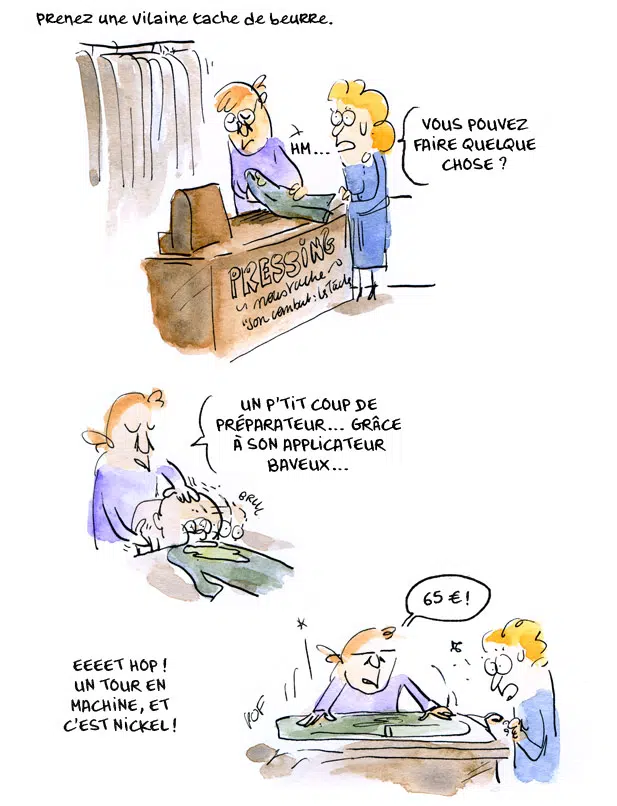 Prenez une vilaine tache de beurre.
HM...
VOUS POUVEZ
FAIRE QUELQUE
CHOSE ?
PRESSING
moustache
"son combat : la Tâche
UN P'TIT COUP DE
PRÉPARATEUR... GRÂCE
À SON APPLICATEUR
BAVEUX...
65 € !
EEEET HOP !
UN TOUR EN
MACHINE, ET
C'EST NICKEL !
POF